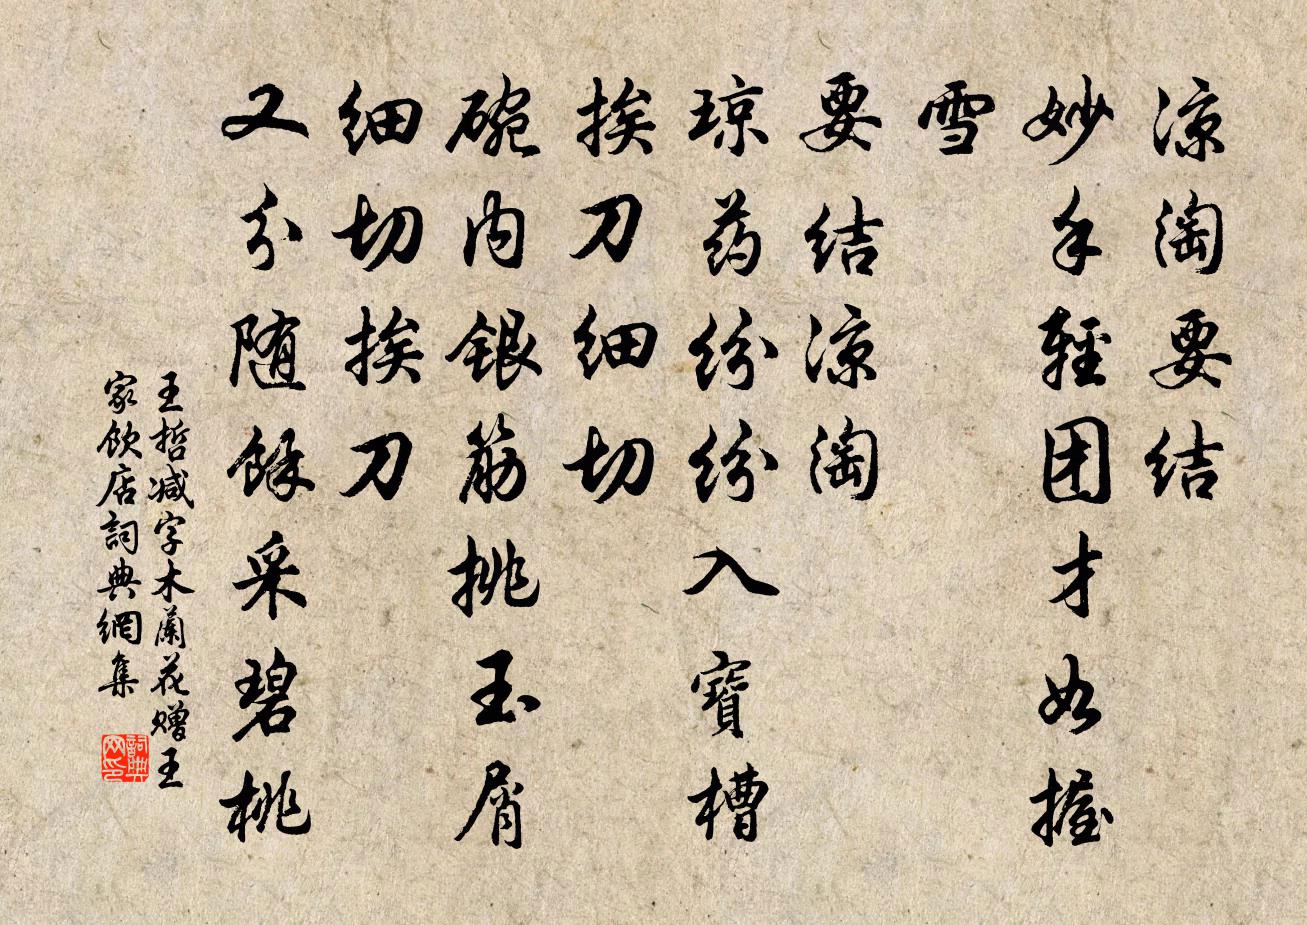 凉淘要结
妙手轻团才如握
雪
要结凉淘
琼药纷纷入寶槽
挨刀细切
碗内银筋挑玉屑
细切挨刀
又分随馀采碧桃
王哲减字木蘭花赠王
家飲店詞典網集
詞典
网印